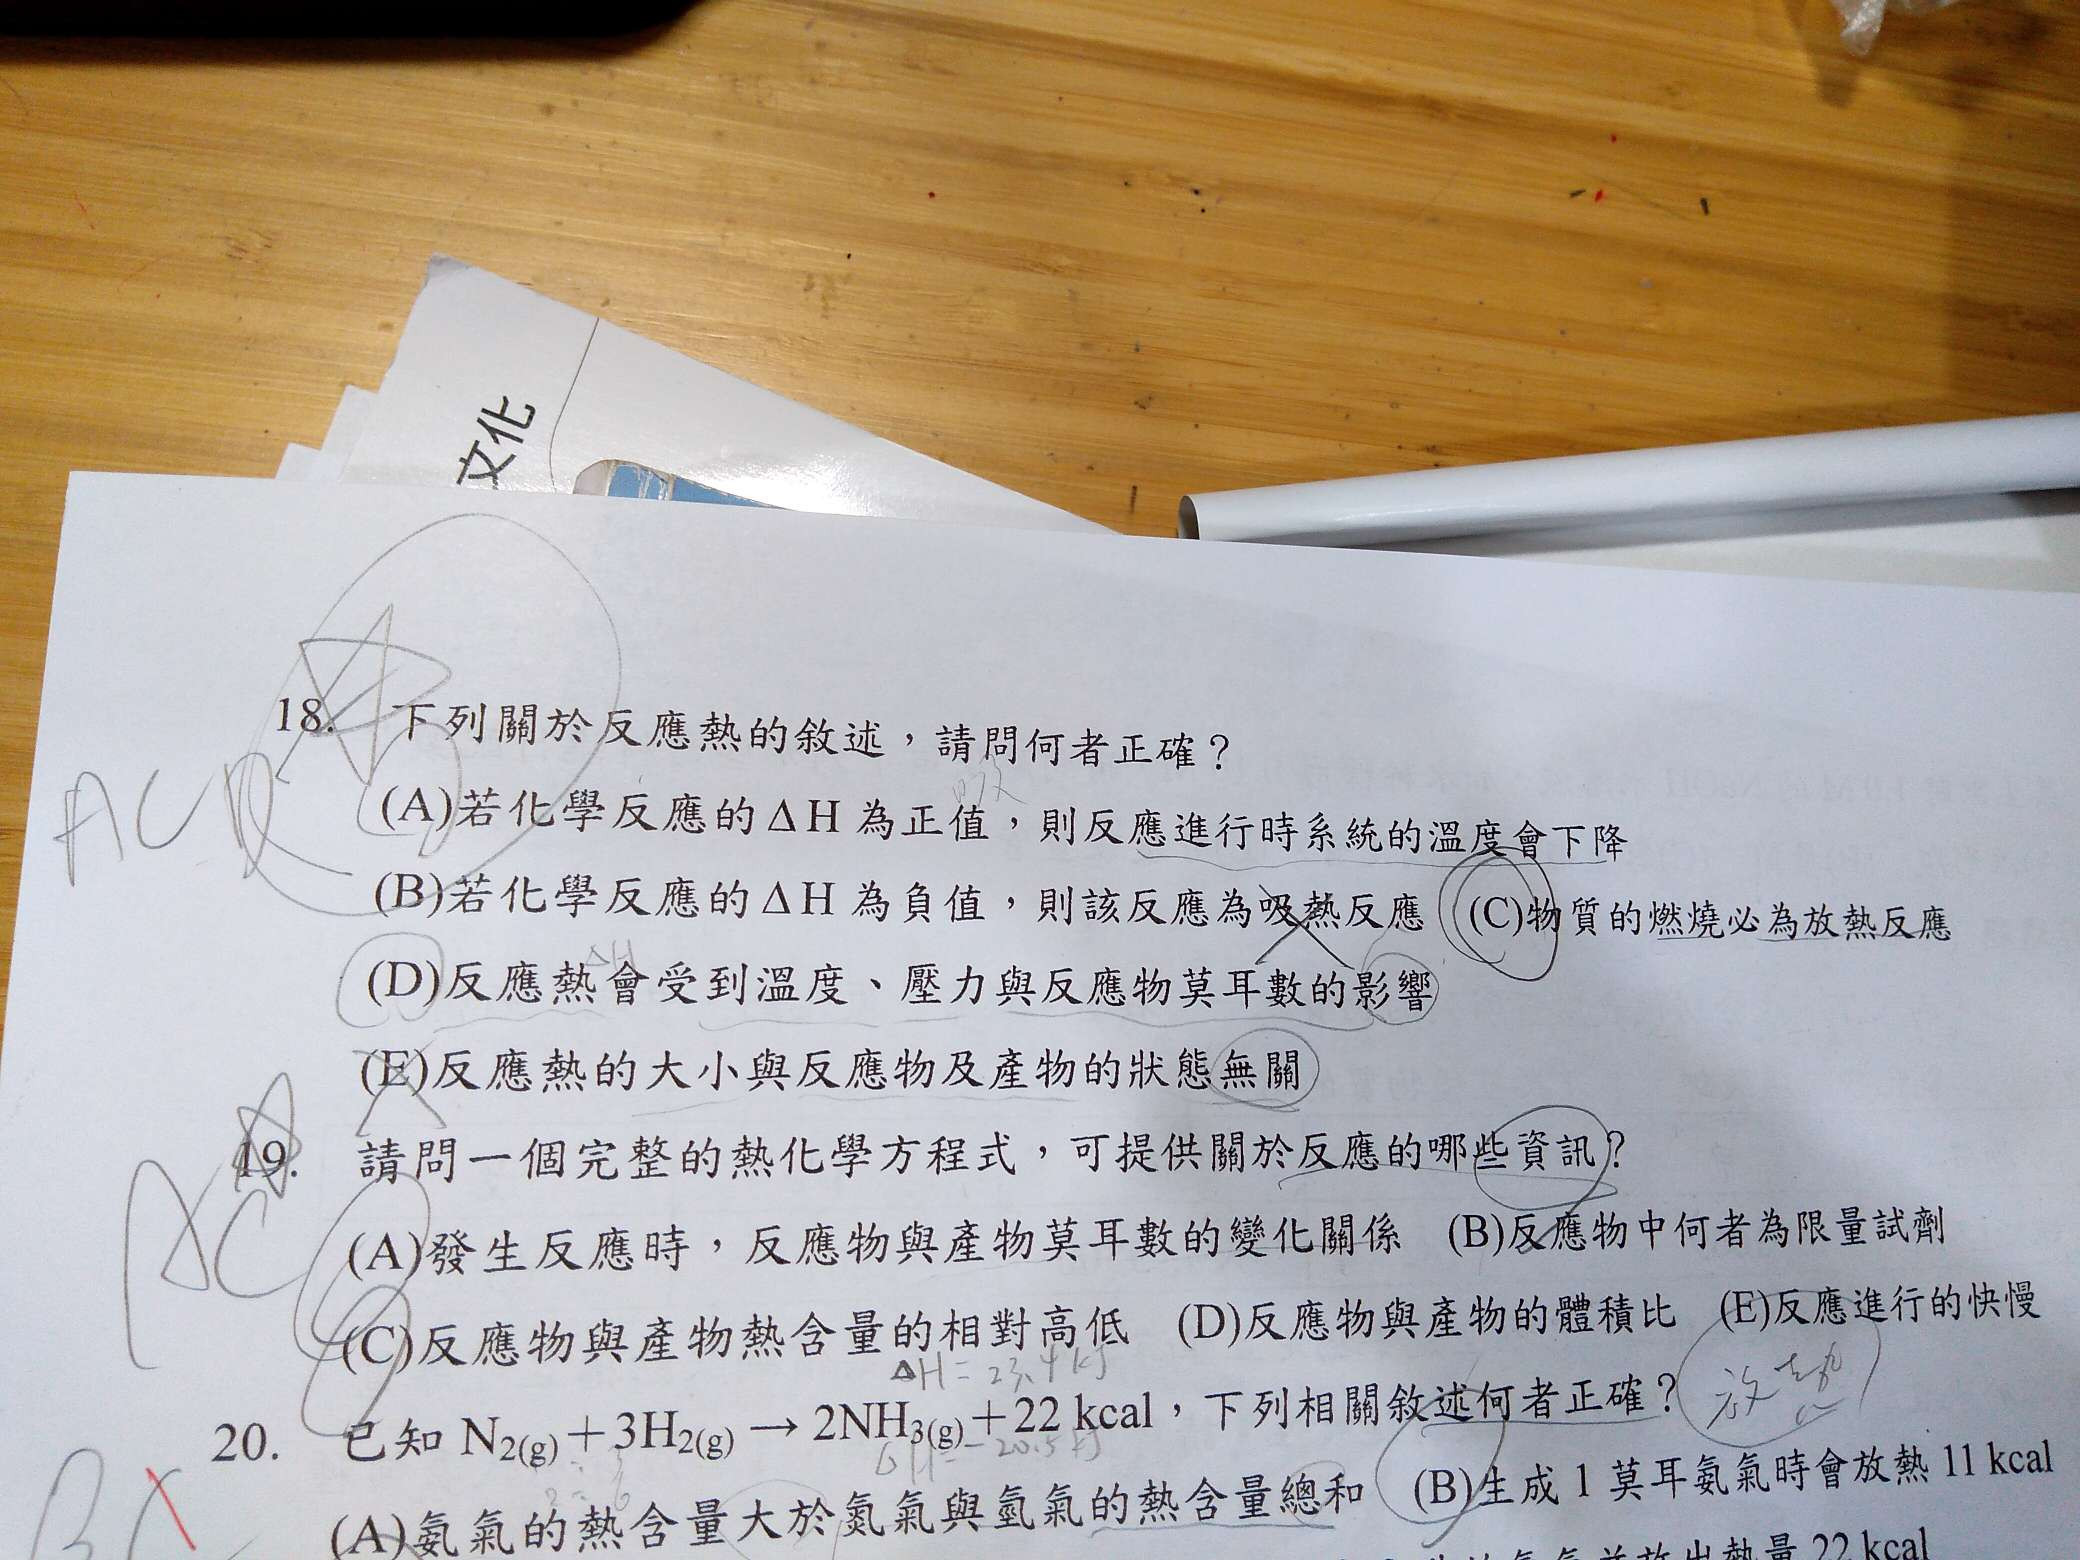 文化
18. 下列關於反應熱的敘述，請問何者正確？
吸
(A)若化學反應的ΔH為正值，則反應進行時系統的溫度會下降
ACD
(B)若化學反應的ΔH為負值，則該反應為吸熱反應 (C)物質的燃燒必為放熱反應
ΔH
(D)反應熱會受到溫度、壓力與反應物莫耳數的影響
(E)反應熱的大小與反應物及產物的狀態無關
19. 請問一個完整的熱化學方程式，可提供關於反應的哪些資訊？
AC
(A)發生反應時，反應物與產物莫耳數的變化關係 (B)反應物中何者為限量試劑
(C)反應物與產物熱含量的相對高低 (D)反應物與產物的體積比 (E)反應進行的快慢
ΔH=23.4kJ
放熱
20. 已知 N2(g)＋3H2(g)→2NH3(g)＋22 kcal，下列相關敘述何者正確？
BC
(A)氨氣的熱含量大於氮氣與氫氣的熱含量總和 (B)生成 1 莫耳氨氣時會放熱 11 kcal
放出熱量 22 kcal